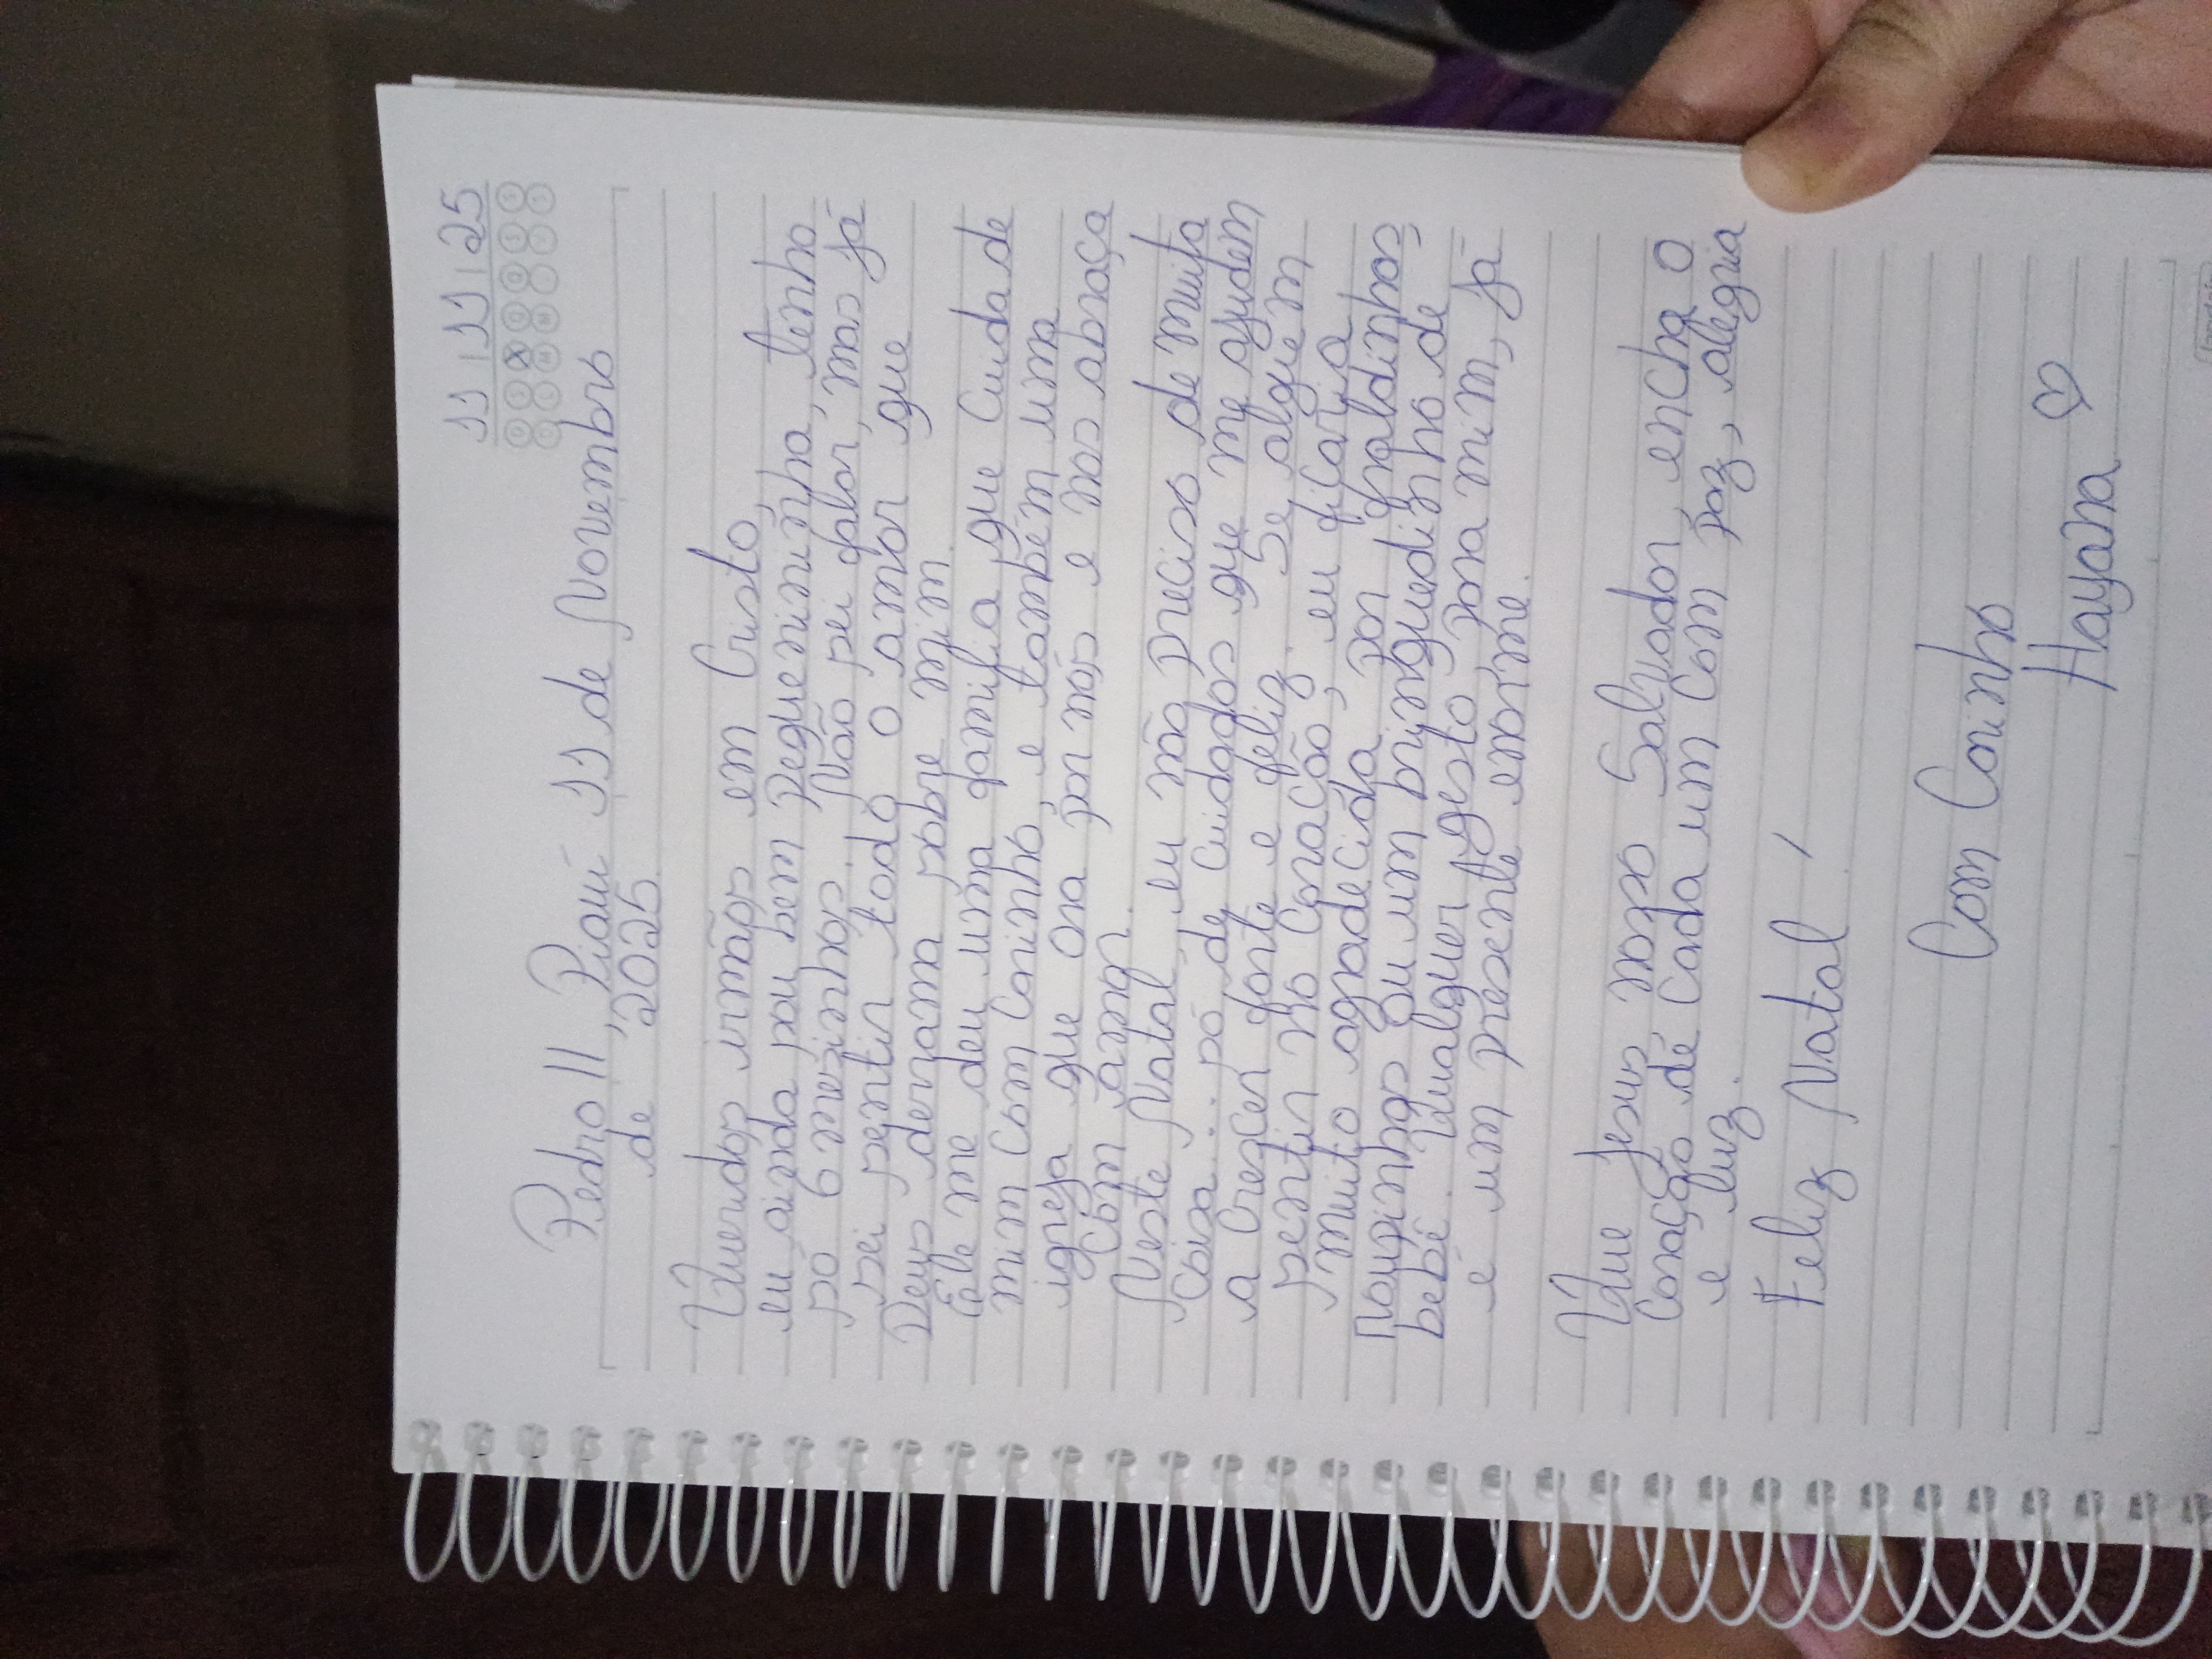 11 | 11 | 25
Pedro II, Piauí 11 de Novembro
de 2025.
Queridos irmãos em Cristo,
eu ainda sou bem pequenininha, tenho
só 6 mezinhos. Não sei falar, mas já
sei sentir todo o amor que
Deus derrama sobre mim.
Ele me deu uma família que cuida de
mim com carinho, e também uma
igreja que ora por nós e nos abraça
com amor.
Neste Natal, eu não preciso de muita
coisa... só de cuidados que me ajudem
a crescer forte e feliz. Se alguém
sentir no coração, eu ficaria
muito agradecida por fraldinhas,
roupinhas ou um brinquedinho de
bebê. Qualquer gesto para mim, já
e um presente enorme.
Que Jesus nosso Salvador, encha o
coração de cada um com paz, alegria
e luz.
Feliz Natal!
Com Carinho
Hayana ♡